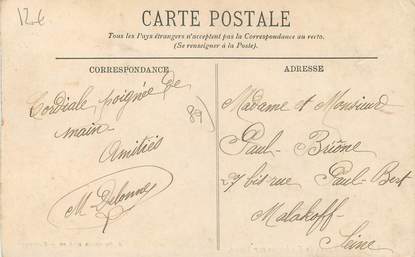 12€
CARTE POSTALE
Tous les Pays étrangers n'acceptent pas la Correspondance au recto.
(Se renseigner à la Poste).
CORRESPONDANCE
Cordiale poignée de
main
Amitiés
M Delonnes
ADRESSE
Madame et Monsieur
Paul Brûme
27 bis rue Paul-Bert
Malakoff
Seine